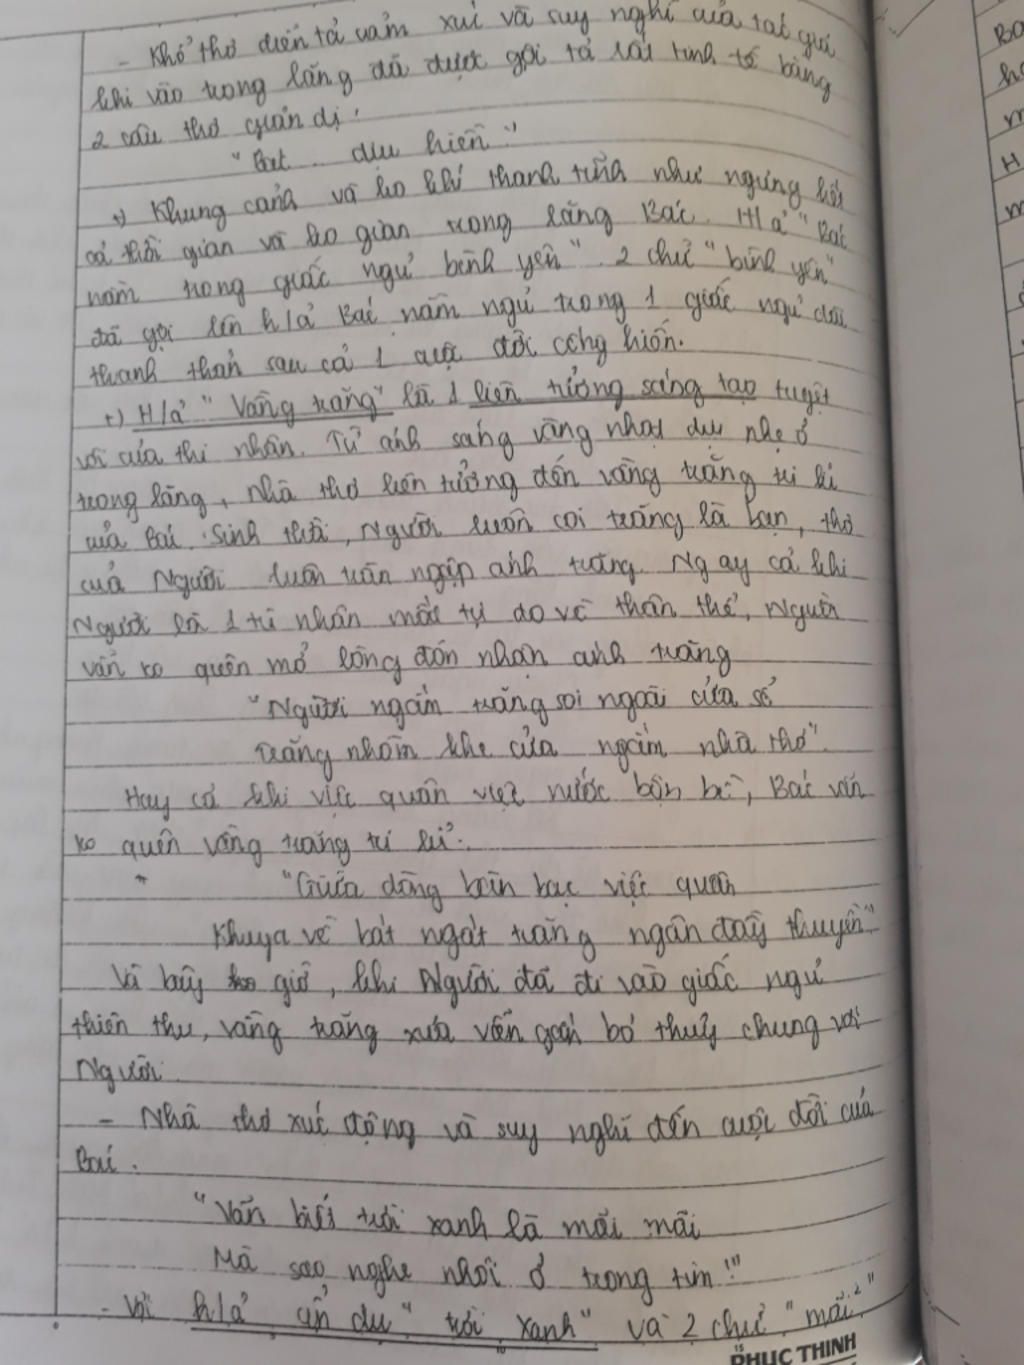 - Khổ thơ diễn tả cảm xúc và suy nghĩ của tác giả
khi vào trong lăng đã được gợi tả rất tinh tế bằng
2 câu thơ giản dị:
"Bác . dịu hiền"
+) Khung cảnh và ko khí thanh tĩnh như ngưng kết
cả thời gian và ko gian trong lăng Bác. H/ả "Bác
nằm trong giấc ngủ bình yên". 2 chữ "bình yên"
đã gợi lên h/ả Bác nằm ngủ trong 1 giấc ngủ dài
thanh thản sau cả 1 cuộc đời cống hiến.
+) H/ả "Vầng trăng" là 1 liên tưởng sáng tạo tuyệt
vời của thi nhân. Từ ánh sáng vàng nhạt dịu nhẹ ở
trong lăng, nhà thơ liên tưởng đến vầng trăng tri kỉ
của Bác. Sinh thời, Người luôn coi trăng là bạn, thơ
của Người luôn tràn ngập ánh trăng. Ngay cả khi
Người là 1 tù nhân mất tự do về thân thể, Người
vẫn ko quên mở lòng đón nhận ánh trăng
"Người ngắm trăng soi ngoài cửa sổ
trăng nhòm khe cửa ngắm nhà thơ".
Hay cả khi việc quân việc nước bộn bề, Bác vẫn
ko quên vầng trăng tri kỉ.
"Giữa dòng bàn bạc việc quân
Khuya về bát ngát trăng ngân đầy thuyền"
Và bây giờ, khi Người đã đi vào giấc ngủ
thiên thu, vầng trăng xưa vẫn gắn bó thuỷ chung với
Người.
- Nhà thơ xúc động và suy nghĩ đến cuộc đời của
Bác.
"Vẫn biết trời xanh là mãi mãi
Mà sao nghe nhói ở trong tim!"
- Với h/ả ẩn dụ "trời xanh" và 2 chữ "mãi²"
PHUC THINH
Ba